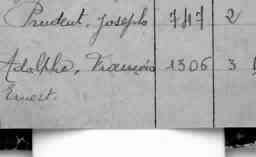 Prudent, Joseph 747 2
Adolphe, François 1306 3
Ernest.